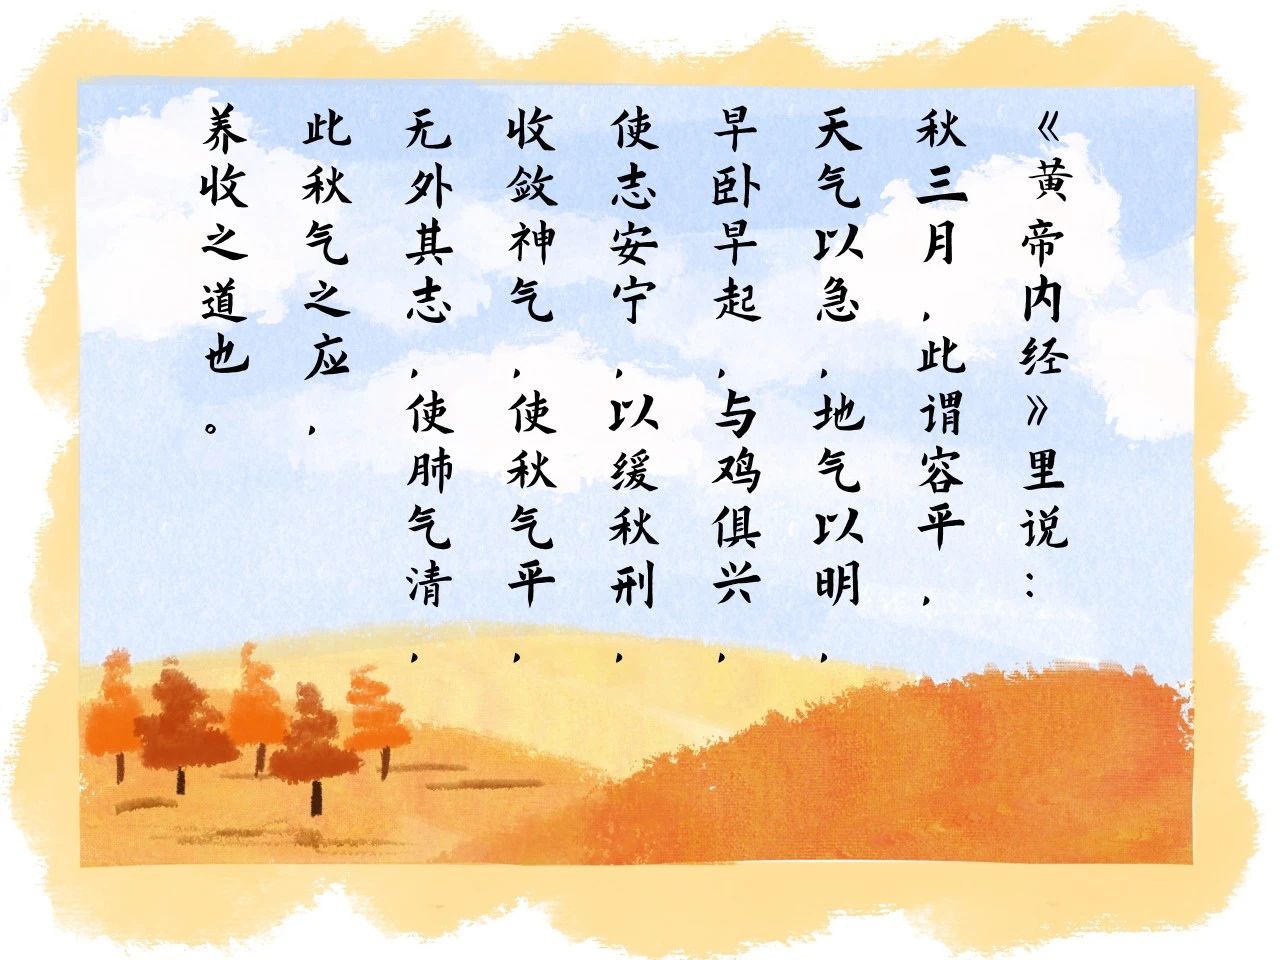 《黄帝内经》里说：
秋三月，此谓容平，
天气以急，地气以明，
早卧早起，与鸡俱兴，
使志安宁，以缓秋刑，
收敛神气，使秋气平，
无外其志，使肺气清，
此秋气之应，
养收之道也。